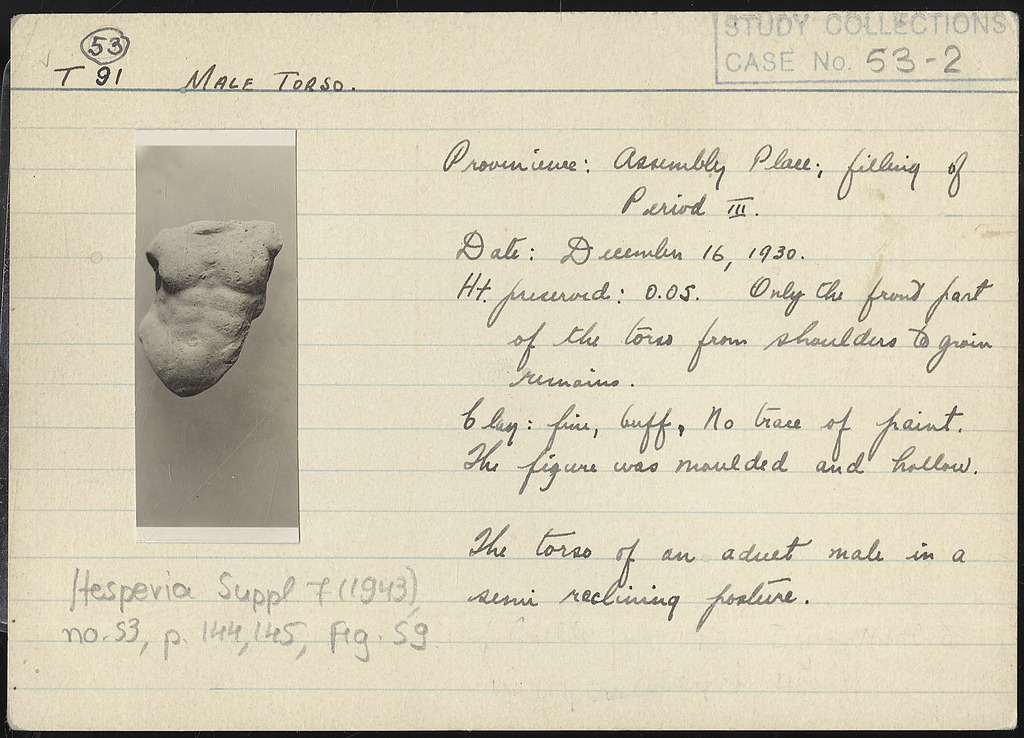 53
T 91 MALE TORSO.
STUDY COLLECTIONS
CASE No. 53-2
Provinience: Assembly Place; filling of
Period III.
Date: December 16, 1930.
Ht. preserved: 0.05. Only the front part
of the torso from shoulders to groin
remains.
Clay: fine, buff, No trace of paint.
The figure was moulded and hollow.
The torso of an adult male in a
semi reclining posture.
Hesperia Suppl 7 (1943),
no. 53, p. 144, 145, Fig. 59